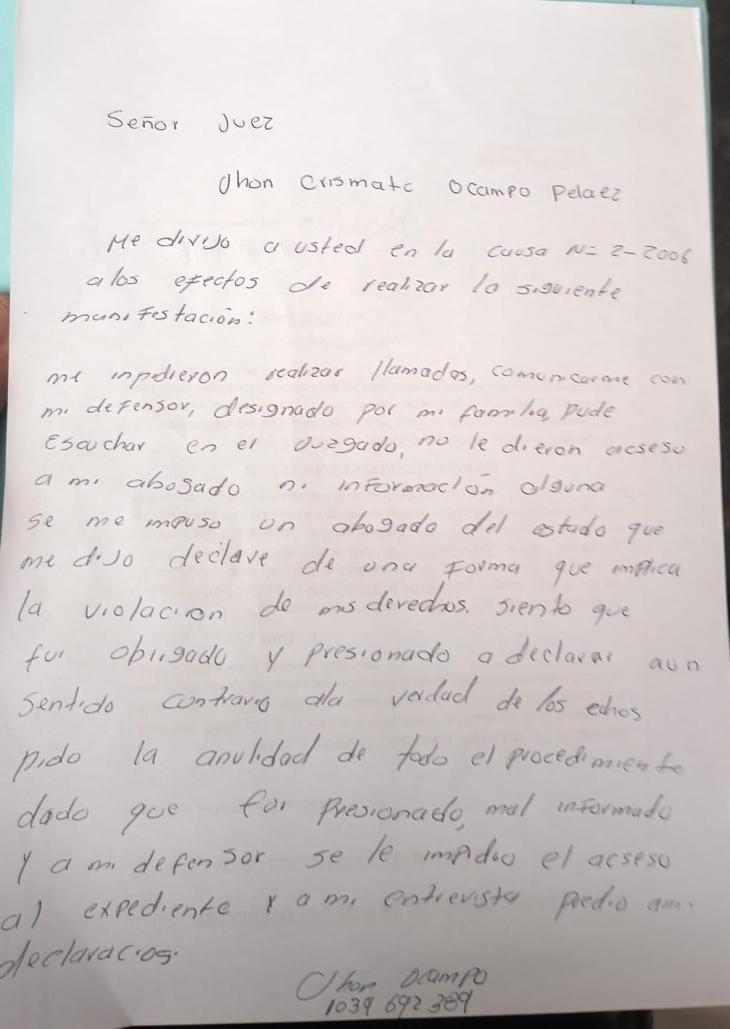 Señor Juez
Jhon Crismatc Ocampo Pelaez
Me dirijo a usted en la causa N= 2-2006
a los efectos de realizar la siguiente
manifestación:
me inpidieron realizar llamadas, comunicarme con
mi defensor, designado por mi familia, pude
Escuchar en el Juzgado, no le dieron acseso
a mi abogado ni información alguna
se me impuso un abogado del estado que
me dijo declare de una forma que implica
la violacion de mis derechos. siento que
fui obligado y presionado a declarar aun
sentido contrario ala verdad de los echos
pido la anulidad de todo el procedimiento
dado que fui presionado, mal informado
Y a mi defensor se le impidio el acseso
al expediente y a mi entrevista predio ami
declaracios.
Jhon Ocampo
1039 692 389